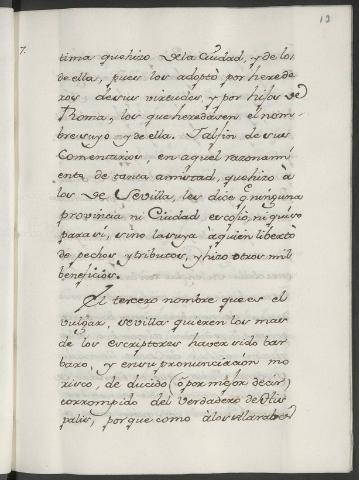 12
7.
tima que hizo de la Ciudad, y de los
de ella, pues los adoptò por herede
ros de sus virtudes y por hijos de
Roma, los que heredasen el nom-
bre suyo y de ella. Tal fin de sus
Comentarios, en aquel razonami
ento de tanta amistad, que hizo à
los de Sevilla, les dice q. ninguna
provincia ni Ciudad escojo, ni quiso
para si, sino la suya à quien libertò
de pechos y tributos, y hizo otros mil
beneficios.
El tercero nombre que es el
vulgar, sevilla quieren los mas
de los escriptores haver sido bar
baro, y en su pronunciacion mo
risco, de ducido (ò por mejor decir)
corrompido del verdadero de His
palis, porque como à los Alarabes